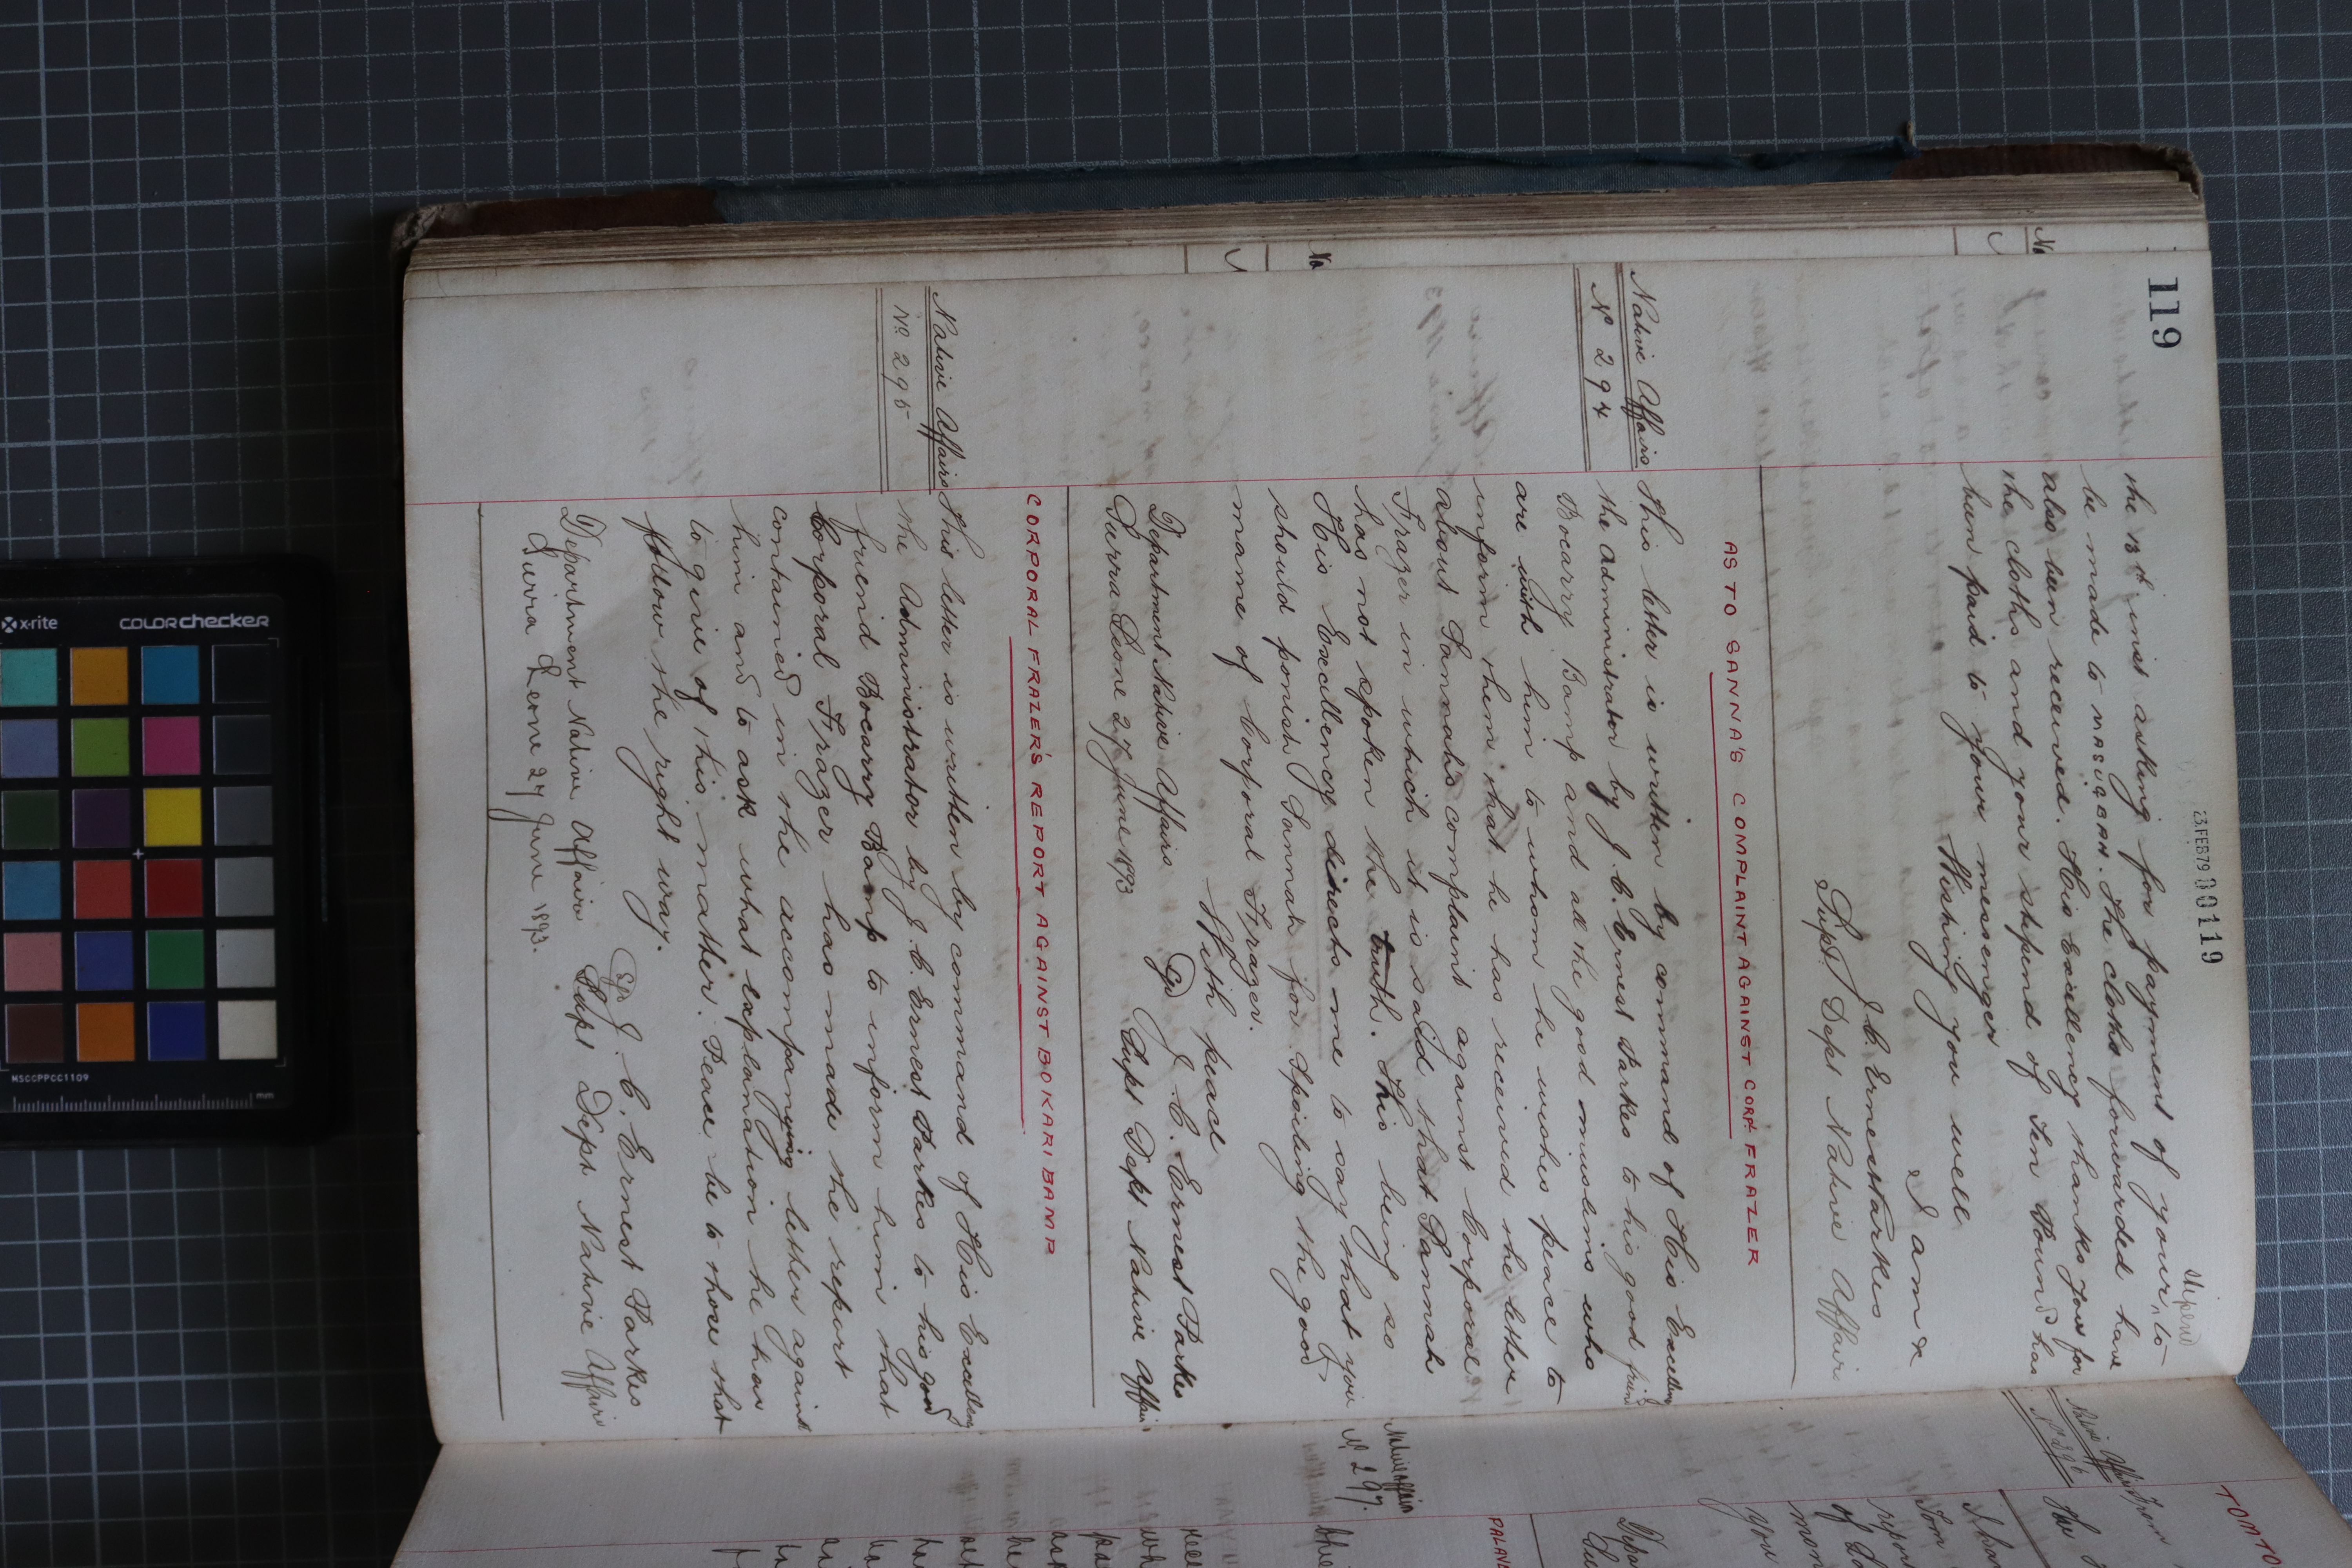 119
23 FEB 79 00119
stipend
the 13th inst asking for payment of your ^ to
be made to MASUGBAH. The cloths forwarded have
also been received. His Excellency thanks you for
the cloths and your stipend of Ten Pound has
been paid to your messenger
Wishing you well
I am &
J. C. Ernest Parkes
Supt Dept Native Affairs
AS TO SANNA'S COMPLAINT AGAINST CORPL FRAZER
Native Affairs
No 294
This letter is written by command of His Excellency
the Administrator by J. C. Ernest Parkes to his good friend
Bocarry Bamp and all the good muslims who
are with him to whom he wishes peace to
inform them that he has received the letter
about Sannah's complaint against Corporal
Frazer in which it is said that Sannah
has not spoken the truth. This being so
His Excellency directs me to say that you
should ponish Sannah for spoiling the good
name of Corporal Frazer.
With peace
Sgd J. C. Ernest Parkes
Department Native Affairs Supt Dept Native Affairs
Sierra Leone 27 June 1893
CORPORAL FRAZER'S REPORT AGAINST BOKARI BAMP
Native Affairs
No 295
This letter is written by command of His Excellency
the Administrator by J. C. Ernest Parkes to his good
friend Bocarry Bamp to inform him that
Corporal Frazer has made the report
contained in the accompanying letter against
him and to ask what explanation he has
to give of this matter. Peace be to those that
follow the right way.
Sgd J. C. Ernest Parkes
Department Native Affairs Supt Dept Native Affairs
Sierra Leone 27 June 1893.
Native Affairs
Native Affairs
No 297.
x-rite
colorchecker
MSCCPPCC1109
mm